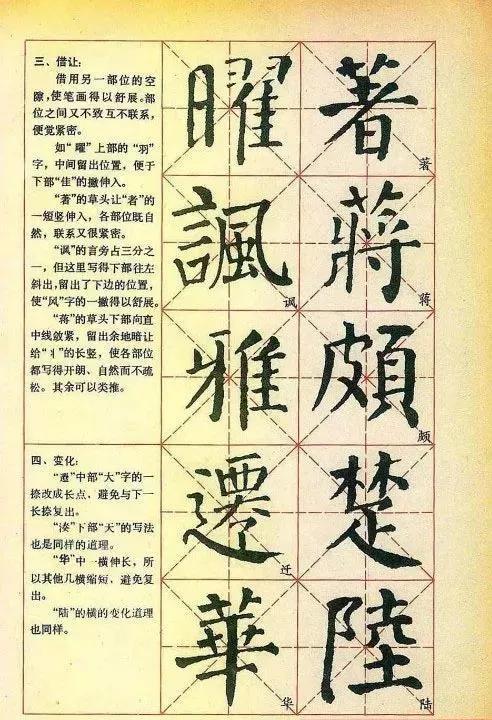 三、借让：
借用另一部位的空
隙，使笔画得以舒展。部
位之间又不致互不联系，
便觉紧密。
如“曜”上部的“羽”
字，中间留出位置，便于
下部“佳”的撇伸入。
“著”的草头让“者”的
一短竖伸入，各部位既自
然，联系又很紧密。
“讽”的言旁占三分之
一，但这里写得下部往左
斜出，留出了下边的位置，
使“风”字的一撇得以舒展。
“蒋”的草头下部向直
中线敛紧，留出余地暗让
给“丬”的长竖，使各部位
都写得开朗、自然而不疏
松。其余可以类推。
四、变化：
“遷”中部“大”字的一
捺改成长点，避免与下一
长捺复出。
“凑”下部“天”的写法
也是同样的道理。
“华”中一横伸长，所
以其他几横缩短，避免复
出。
“陆”的横的变化道理
也同样。
著
著
蔣
蒋
頗
颇
楚
陸
陆
曜
諷
讽
雅
遷
迁
華
华